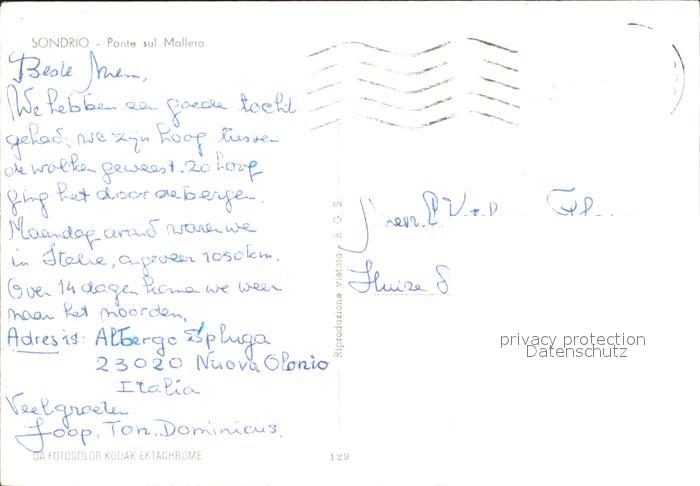 SONDRIO - Ponte sul Mallero
Beste Mem,
We hebben een goede tocht
gehad; we zijn hoog tussen
de wolken geweest. zo hoog
ging het door de bergen.
Maandag avond waren we
in Italie, ongeveer 1050 km.
Over 14 dagen komen we weer
naar het noorden,
Adres is: Albergo Spluga
23020 Nuova Olonio
Italia
Veel groeten
Joop, Ton, Dominicus.
DA FOTOCOLOR KODAK EKTACHROME
129
Riproduzione vietata - R. G. S.
Huize S
privacy protection
Datenschutz